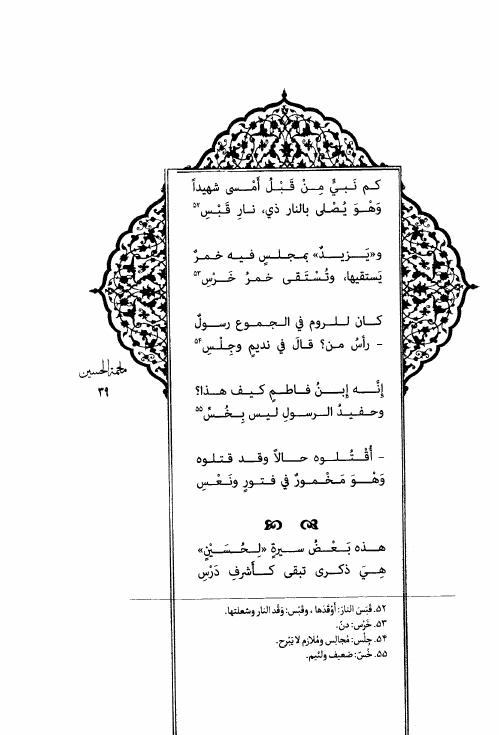 كم نَبيٍّ مِنْ قَبْلُ أمْسى شهيداً
وَهْوَ يُصْلى بالنار ذي، نارِ قَبْسِ ٥٢
و«يَزيدٌ» بمجلسٍ فيه خمرٌ
يَستقيها، وتُسْتَقى خمرُ خَرْسِ ٥٣
كان للروم في الجموع رسولٌ
- رأسُ من؟ قالَ في نديمٍ وجِلْسِ ٥٤
إنَّه إبنُ فاطمٍ كيف هذا؟
وحفيدُ الرسولِ ليس بِخُسٌ ٥٥
- أُقْتُلوه حالاً وقد قتلوه
وَهْوَ مَخْمورٌ في فتورٍ ونَعْسِ
هذه بَعْضُ سيرةٍ «لِحُسَيْنٍ»
هِيَ ذكرى تبقى كأشرفِ دَرْسِ
ملحمة الحسين
٣٩
٥٢. قَبَسَ النارَ: أوْقَدَها، وقَبْس: وَقْد النار وشعلتها.
٥٣. خَرْس: دنّ.
٥٤. جِلْس: مُجالِس ومُلازم لا يَبْرح.
٥٥. خُسّ: ضعيف ولئيم.